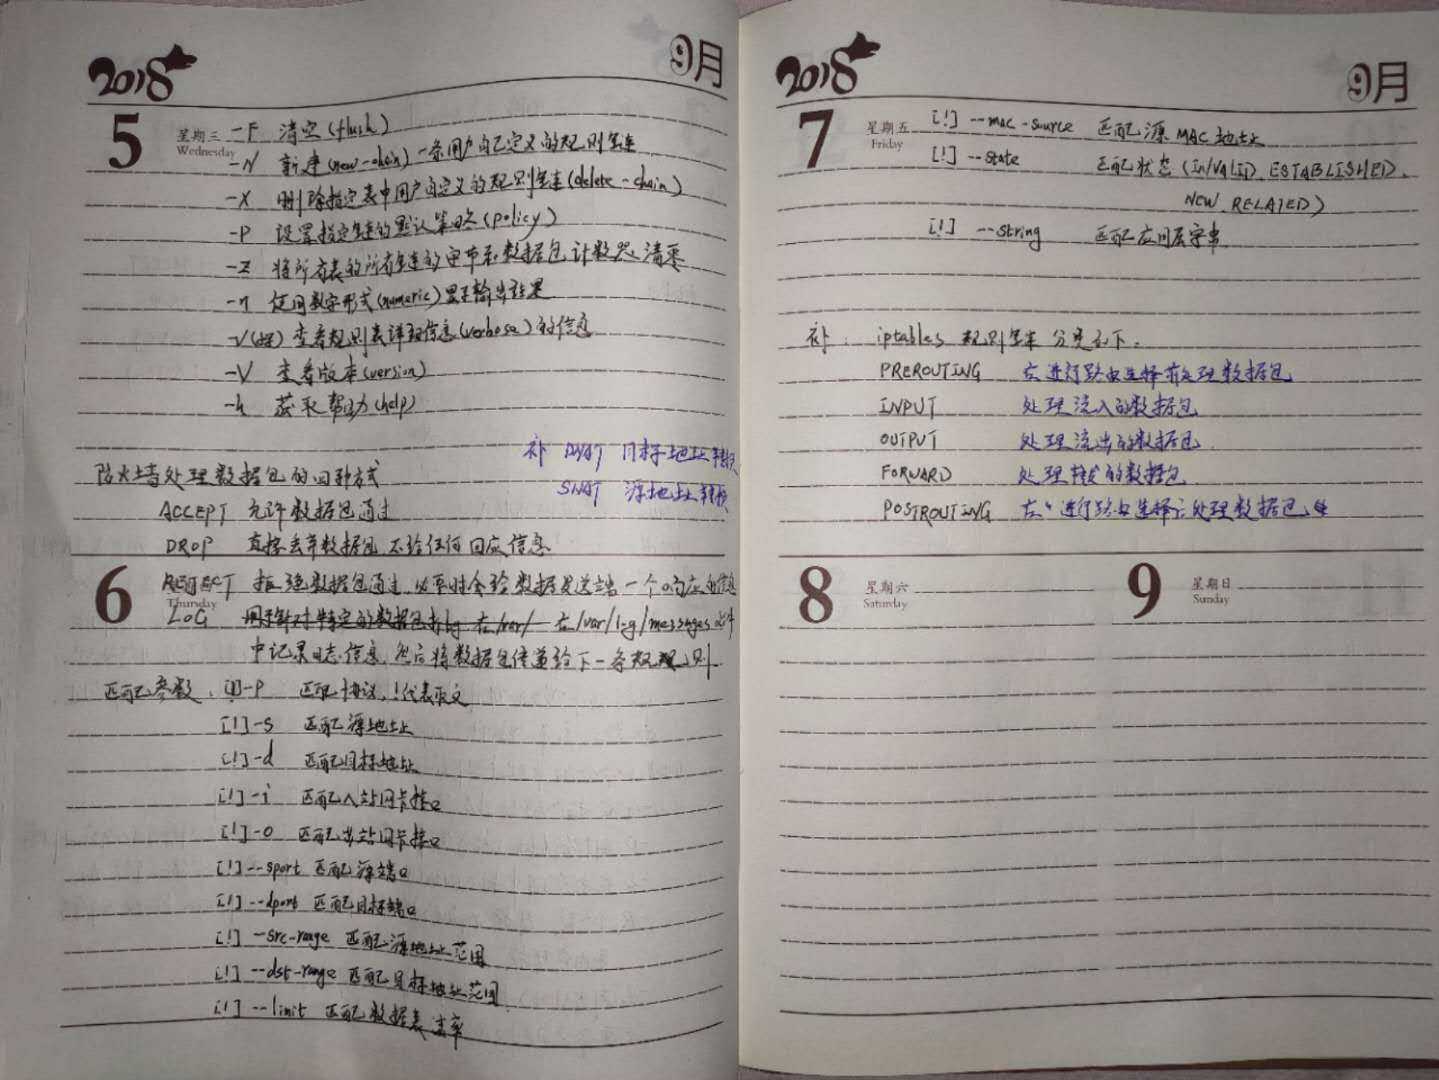 2018
9月
5 星期三 Wednesday
-F 清空(flush)
-N 新建(new-chain)一条用户自己定义的规则链
-X 删除指定表中用户自定义的规则链(delete-chain)
-P 设置指定链的默认策略(policy)
-Z 将所有表的所有链的字节和数据包计数器清零
-n 使用数字形式(numeric)显示输出结果
-v 查看规则表详细信息(verbose)的信息
-V 查看版本(version)
-h 获取帮助(help)
补 DNAT 目标地址转换
SNAT 源地址转换
防火墙处理数据包的四种方式
ACCEPT 允许数据包通过
DROP 直接丢弃数据包,不给任何回应信息
6 Thursday
REJECT 拒绝数据包通过,必要时会给数据发送端一个响应的信息
LOG 用于针对特定的数据包打log 在/var/ 在/var/log/messages文件
中记录日志信息,然后将数据包传递给下一条规则
匹配参数: [!]-p 匹配协议,!代表取反
[!]-s 匹配源地址
[!]-d 匹配目标地址
[!]-i 匹配入站网卡接口
[!]-o 匹配出站网卡接口
[!]--sport 匹配源端口
[!]--dport 匹配目标端口
[!]--src-range 匹配源地址范围
[!]--dst-range 匹配目标地址范围
[!]--limit 匹配数据表速率
2018
9月
7 星期五 Friday
[!]--mac-source 匹配源MAC地址
[!]--state 匹配状态(INVALID、ESTABLISHED、
NEW、RELATED)
[!]--string 匹配应用层字串
补: iptables 规则链分类如下:
PREROUTING 在进行路由选择前处理数据包
INPUT 处理流入的数据包
OUTPUT 处理流出的数据包
FORWARD 处理转发的数据包
POSTROUTING 在进行路由选择后处理数据包
8 星期六 Saturday
9 星期日 Sunday